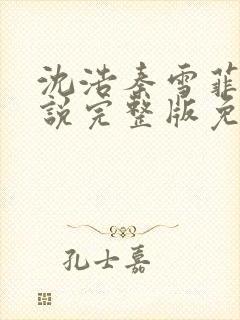 沈浩秦雪菲
说完整版免
孔士嘉